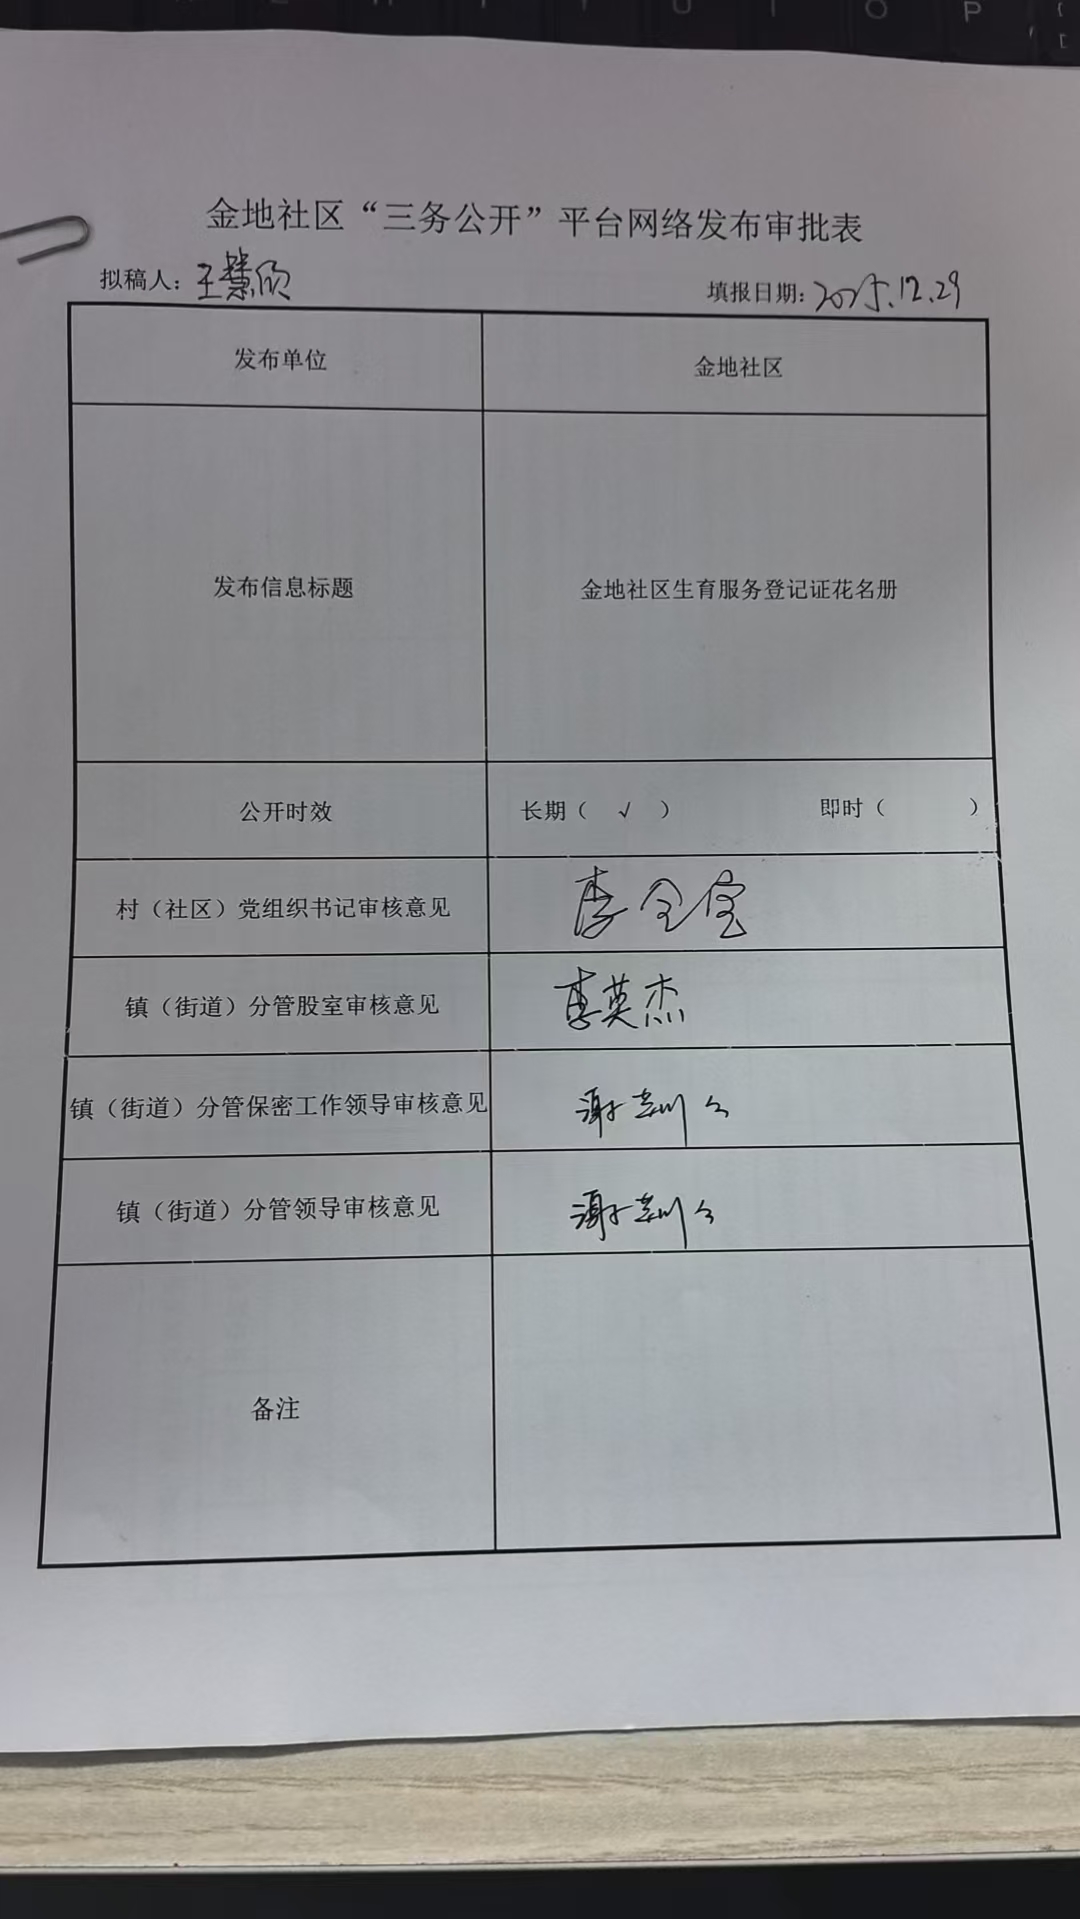 金地社区“三务公开”平台网络发布审批表
拟稿人：王慧欣 填报日期：2025.12.29
发布单位 金地社区
发布信息标题 金地社区生育服务登记证花名册
公开时效 长期（ √ ） 即时（ ）
村（社区）党组织书记审核意见
镇（街道）分管股室审核意见 李英杰
镇（街道）分管保密工作领导审核意见
镇（街道）分管领导审核意见
备注